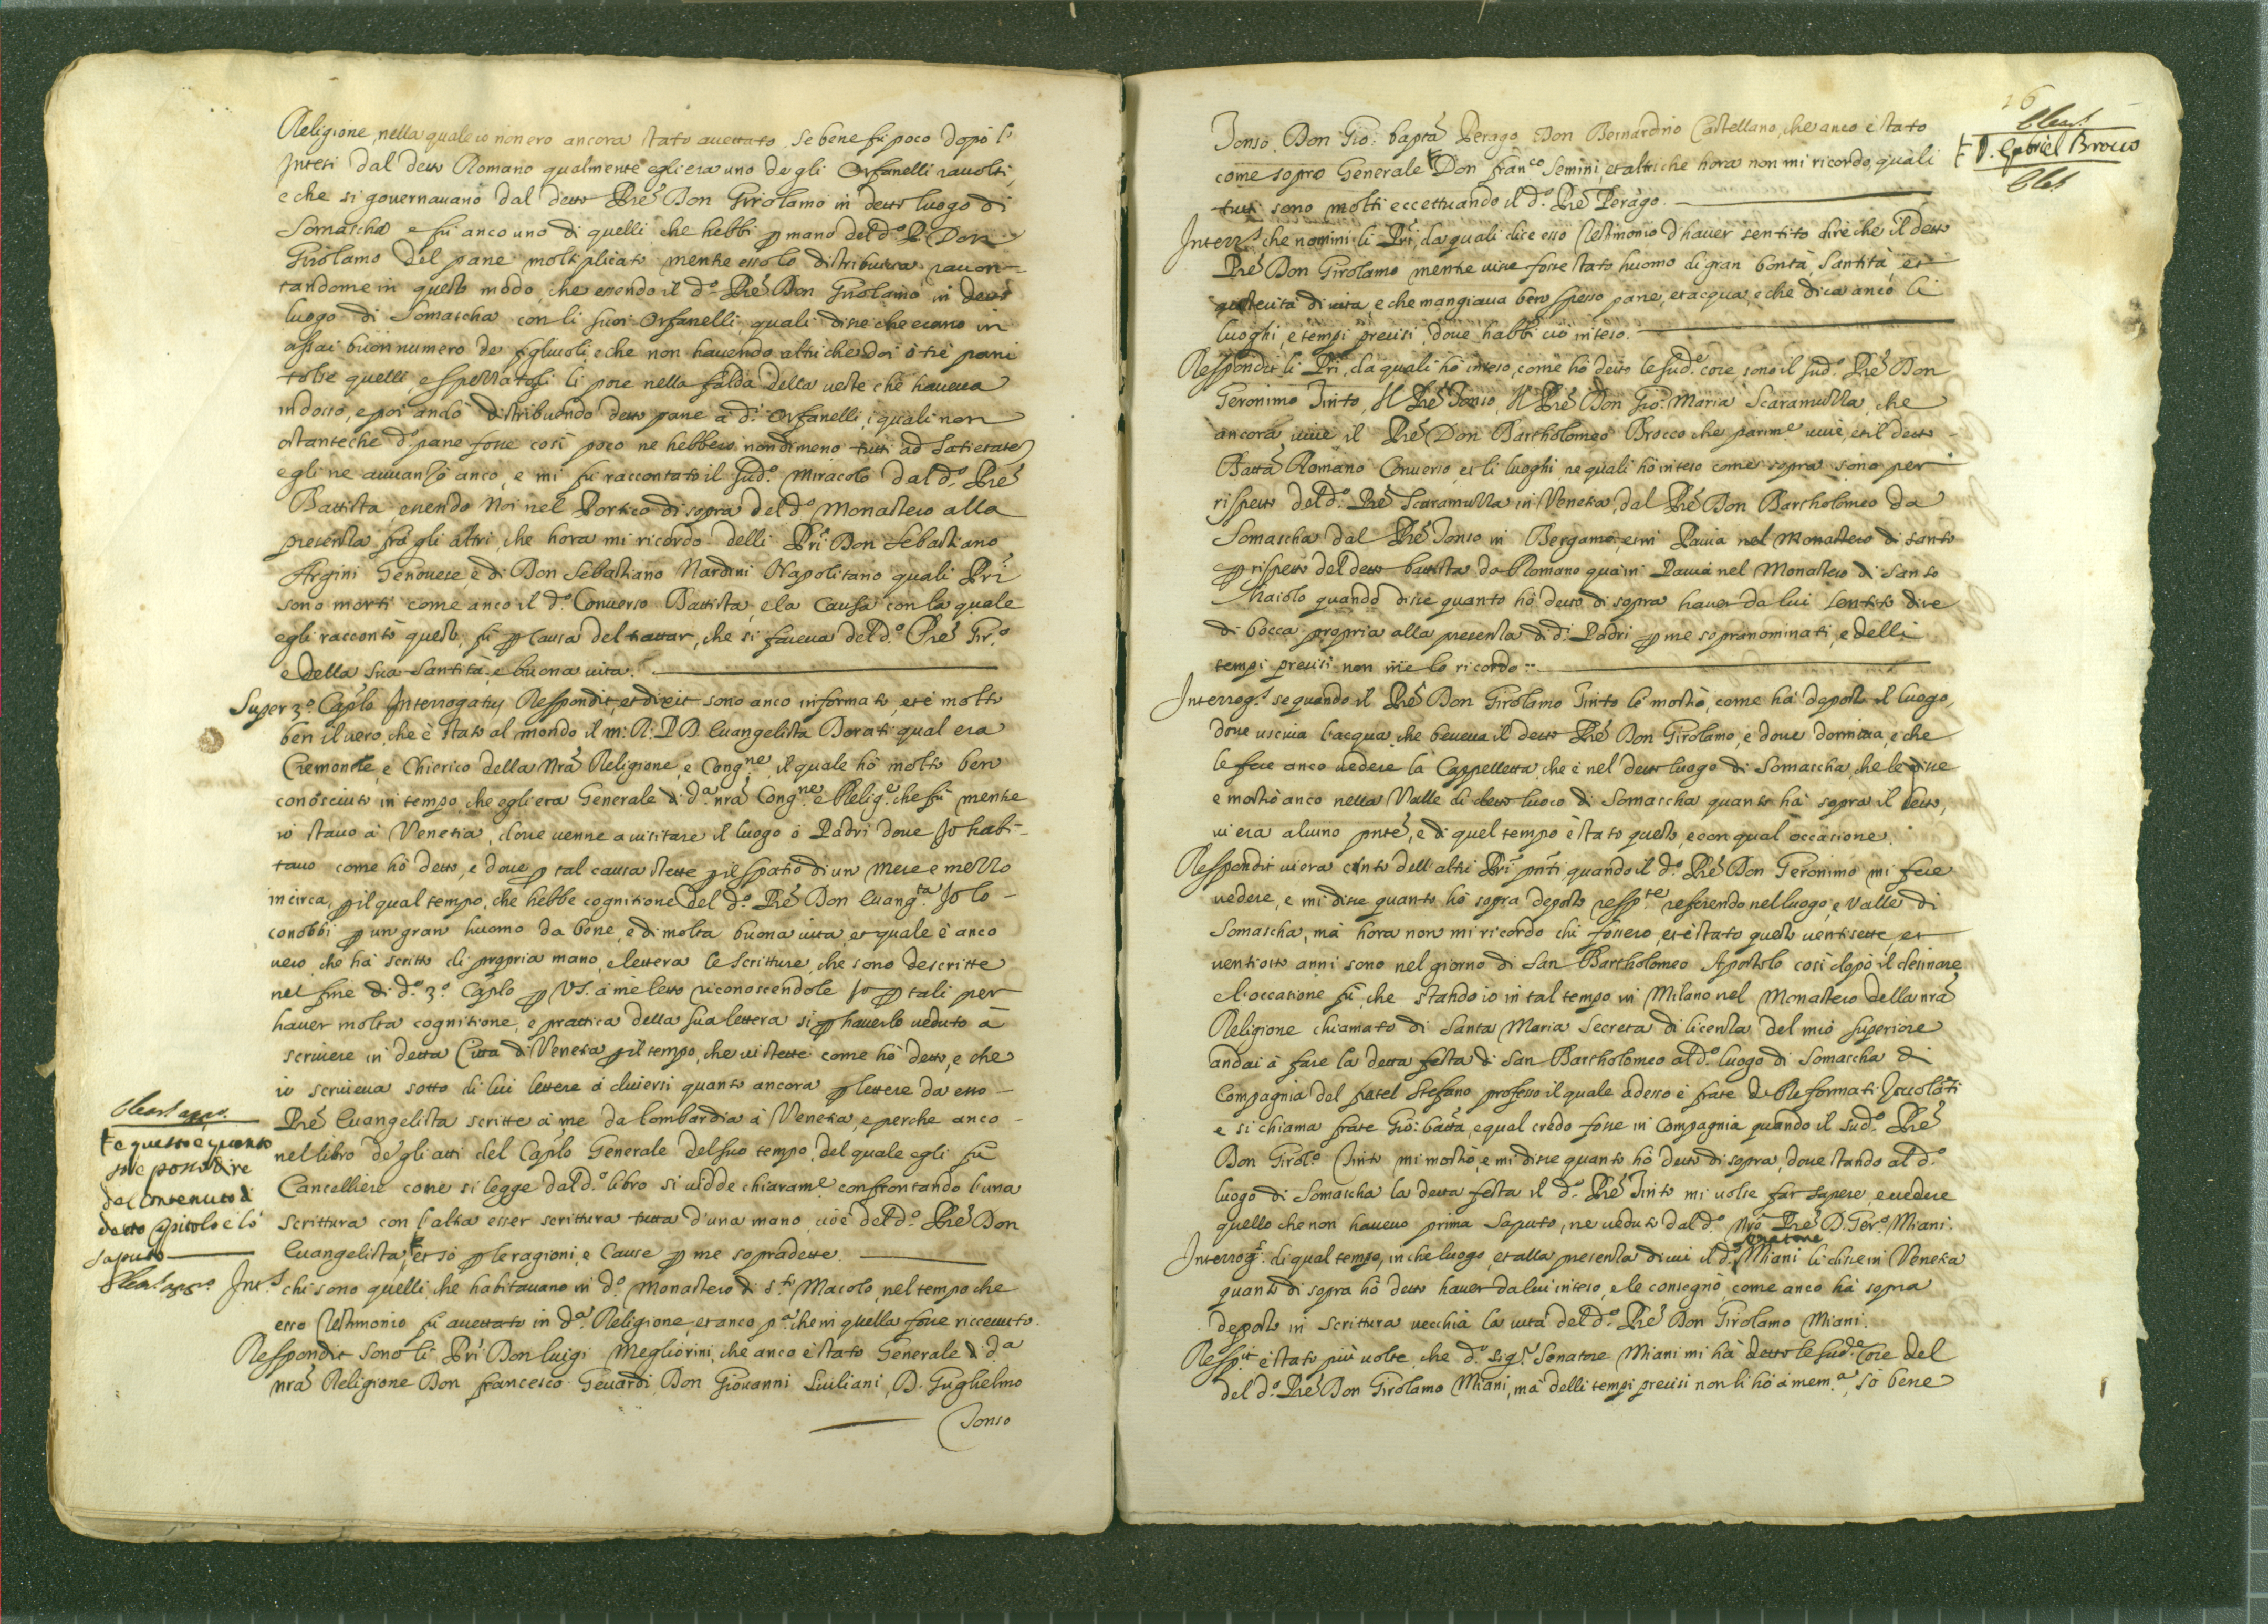 Religione, nella quale io non ero ancora stato accettato, se bene fù poco dopò l'
intesi dal detto Romano qualmente egli era uno de gli Orfanelli racolti,
e che si governavano dal detto Prê Don Girolamo in detto luogo di
Somascha e fù anco uno di quelli che hebbi p mano del d.º P. Don
Girolamo del pane moltiplicato mentre esso lo distribuiva, raccon-
tandome in questo modo, che essendo il d.º Prê Don Girolamo in detto
luogo di Somascha con li suoi Orfanelli quali disse che erano in
assai buon numero de figluoli, e che non havendo altri che doi ò trè pani
tolse quelli, e spezzatogli li pose nella falda della veste che haveva
indosso, e poi andò distribuendo detto pane à d.i Orfanelli, i quali non
ostante che d.º pane fosse così poco ne hebbero nondimeno tutti ad satietate
e gli ne avvanzò anco, e mi fù raccontato il sud.º miracolo dal d.º Prê
Battista essendo Noi nel Portico di sopra del d.º Monastero alla
presenza frà gli altri, che hora mi ricordo delli Pri Don Sebastiano
Argini Genovese e di Don Sebastiano Nardini Napolitano quali Pri
sono morti come anco il d.º Converso Battista, e la causa con la quale
egli raccontò questo, fù p causa del trattar, che si faceva del d.º Prê Gir.º
e della sua santità, e buona vita.
Super 3.º Caplo Interrogatus Respondit, et dixit sono anco informato, et è molto
ben il vero, che è stato al mondo il m: R: P. D. Evangelista Dorati qual era
Cremonese, e Chierico della Nrâ Religione, e Cong.ne, il quale hò molto ben
conosciuto in tempo, che egli era Generale di d.a nrâ Cong.ne e Relig.e che fù mentre
io stavo à Venetia, dove venne a visitare il luogo ò Padri dove Jo habi-
tavo come hò detto, e dove p tal causa stette p il spatio di un mese e mezzo
in circa, p il qual tempo, che hebbe cognitione del d.º Prê Don Evang.ta Jo lo
conobbi p un gran huomo da bene, e di molta buona vita, et quale è anco
vero, che hà scritto di propria mano, e lettera le scritture, che sono descritte
nel fine di d.º 3.º Caplo p VS. à me letto riconoscendole Jo p tali per
haver molta cognitione, e prattica della sua lettera sì p haverlo veduto à
scrivere in detta Città di Venetia p il tempo, che vi stette come hò detto, e che
io scriveva sotto di lui lettere à diversi quanto ancora p lettere da esso
Prê Evangelista scritte à me da Lombardia à Venetia, e perche anco
nel libro de gli atti del Caplo Generale del suo tempo, del quale egli fù
Cancelliere come si legge dal d.º libro si vidde chiaram.e confrontando l'una
scrittura con l'altra esser scrittura tutta d'una mano, cioè del d.º Prê Don
Evangelista, et sò p le ragioni, e cause p me sopradette.
e questo e quanto
posso dire
del contenuto di
detto Capitolo è lò
saputo
Int.s chi sono quelli, che habitavano in d.º Monastero di S.to Maiolo, nel tempo che
esso Testimonio fù accettato in d.a Religione, et anco p.a che in quella fosse riccevuto.
Respondit sono li Pri Don Luigi Megliorini, che anco è stato Generale di d.a
nrâ Religione Don Francesco Gevardi, Don Giovanni Luiliani, D. Guglielmo
Tonso
16
D. Gabriel Brocco
Tonso, Don Gio: bapta Perego, Don Bernardino Castellano, che anco è stato
come sopra Generale Don Fran.co Semini, et altri che hora non mi ricordo, quali
tutti sono molti eccettuando il d.º Prê Perego.
Interr.s che nomini li Pri, da quali dice esso Testimonio d'haver sentito dire che il detto
Prê Don Girolamo mentre visse fosse stato huomo di gran bontà, Santità, et
austerità di vita, e che mangiava ben spesso pane, et acqua, e che dica anco li
luoghi, e tempi precisi, dove habbi ciò inteso.
Respondit li Pri, da quali hò inteso, come hò detto le sud.e cose, sono il sud.º Prê Don
Geronimo Tinto, Il Prê Tonso, Il Prê Don Gio: Maria Scaramuzza, che
ancora vive, il Prê Don Bartholomeo Brocco che parim.e vive, et il detto
Batta Romano Converso, et li luoghi, ne quali hò inteso come sopra sono per
rispetto del d.º Prê Scaramuzza in Venetia, dal Prê Don Bartholomeo da
Somascha dal Prê Tonso in Bergamo, et in Pavia nel Monastero di Santo
p rispetto del detto battista da Romano quà in Pavia nel Monastero di Santo
Maiolo quando disse quanto hò detto di sopra haver da lui sentito dire
di bocca propria alla presenza di d.i Padri p me sopranominati, e delli
tempi precisi non me lo ricordo:-
Interrog.s se quando il Prê Don Girolamo Tinto lo mostrò, come hà deposto il luogo,
dove usciva l'acqua, che beveva il detto Prê Don Girolamo, e dove dormiva, e che
le fece anco vedere la Cappelletta, che è nel detto luogo di Somascha, che le disse
e mostrò anco nella Valle di detto luoco di Somascha quanto hà sopra il detto,
vi era alcuno pnte, e di quel tempo è stato questo, e con qual occasione.
Respondit vi era dell'altri Pri pnti, quando il d.º Prê Don Geronimo mi fece
vedere, e mi disse quanto hò sopra deposto resp.te referendo nel luogo, e Valle di
Somascha, mà hora non mi ricordo chi fossero, et è stato questo ventisette, et
ventiotto anni sono nel giorno di San Bartholomeo Apostolo così dopò il desinare
e l'occasione fù, che stando io in tal tempo in Milano nel Monastero della nrâ
Religione chiamato di Santa Maria Secreta di licenza del mio Superiore
andai à fare la detta festa di San Bartholomeo al d.º luogo di Somascha di
Compagnia del fratel Stefano professo il quale adesso è frate de Reformati Zocolati
e si chiama frate Gio: batta, e qual credo fosse in Compagnia quando il sud.º Prê
Don Girol.º Tinto mi mostrò, e mi disse quanto hò detto di sopra, dove stando al d.º
luogo di Somascha la detta festa il d.º Prê Tinto mi volse far sapere e vedere
quello che non havevo prima saputo, ne veduto dal d.º Nrô Prê D. Ger.º Miani.
Interrog.s di qual tempo, in che luogo, et alla presenza di cui il d.º Senatore Miani li disse in Venetia
quanto di sopra hò detto haver da lui inteso, e le consegnò come anco hà sopra
deposto in scrittura vecchia la vita del d.º Prê Don Girolamo Miani.
Resp.it è stato più volte, che d.º Sig.r Senatore Miani mi hà detto le sud.e Cose del
del d.º Prê Don Girolamo Miani, mà delli tempi precisi non li hò à mem.a, sò bene